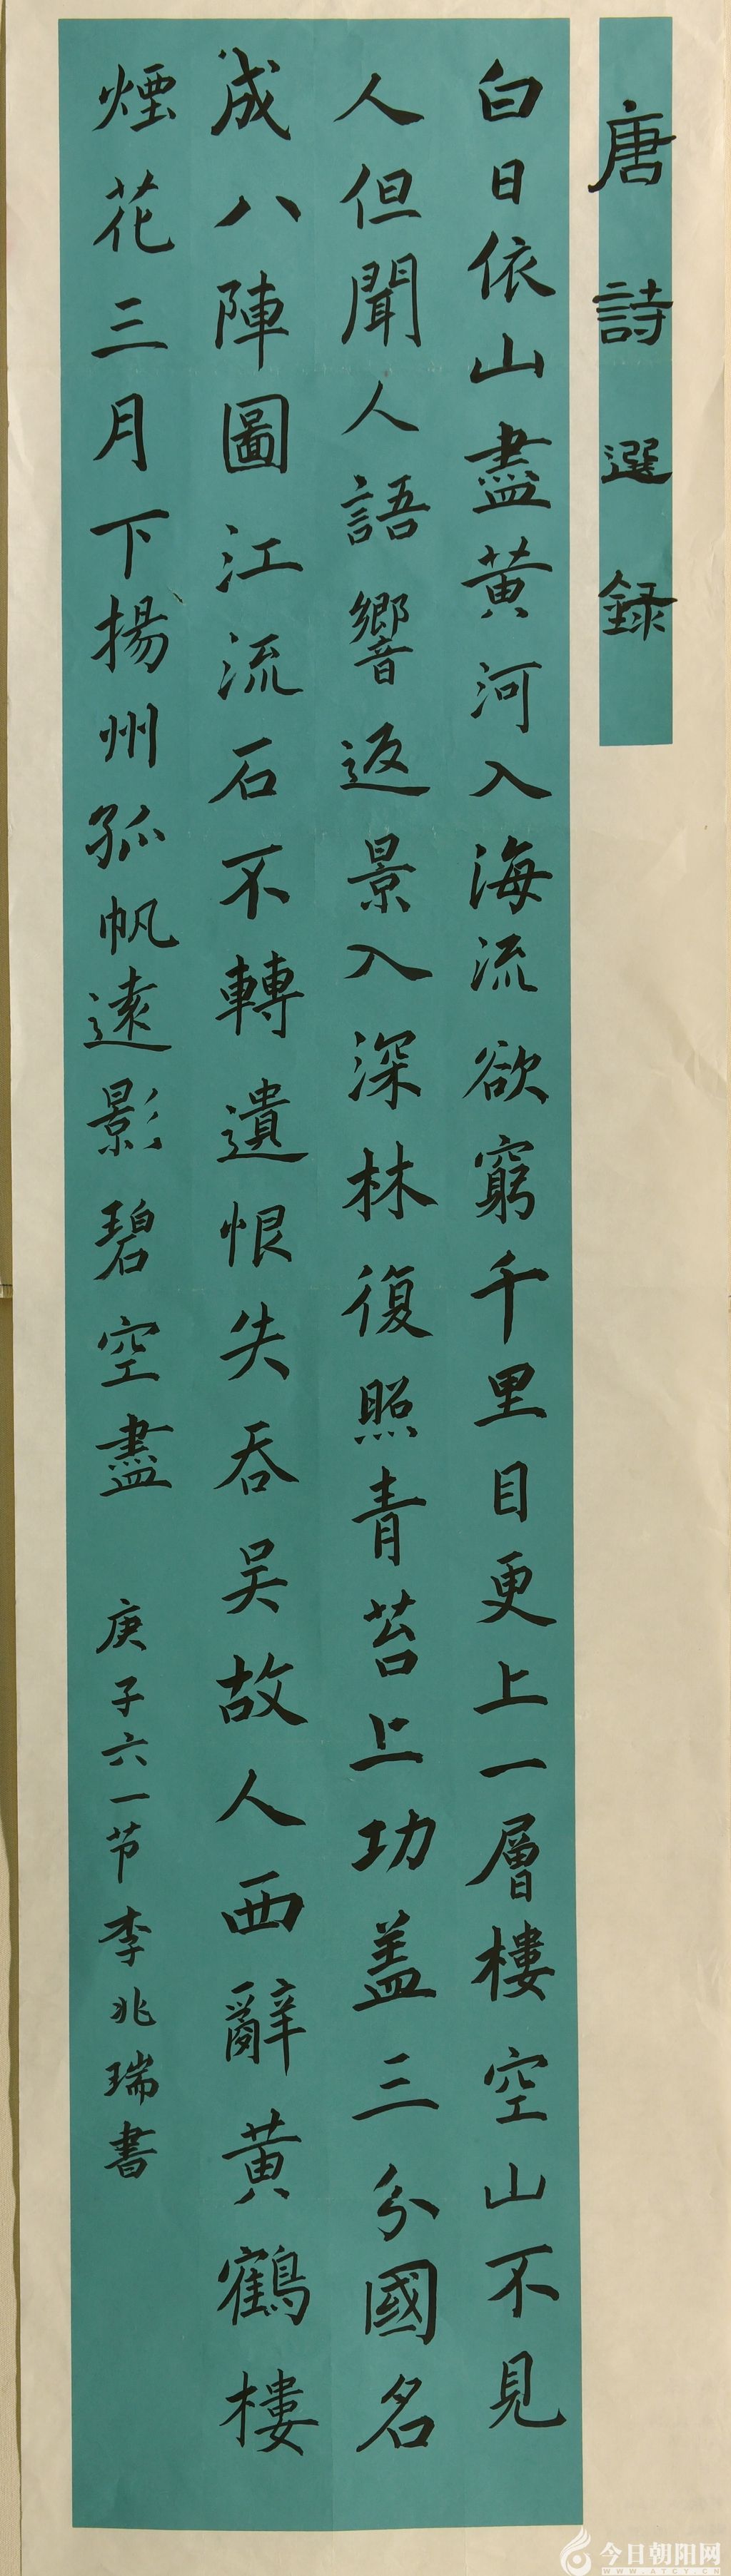 唐詩選録
白日依山盡黄河入海流欲窮千里目更上一層樓空山不見
人但聞人語響返景入深林復照青苔上功盖三分國名
成八陣圖江流石不轉遺恨失吞吴故人西辭黄鶴樓
煙花三月下揚州孤帆遠影碧空盡
庚子六一节李兆瑞書
今日朝阳网
WWW.ATCT.CN